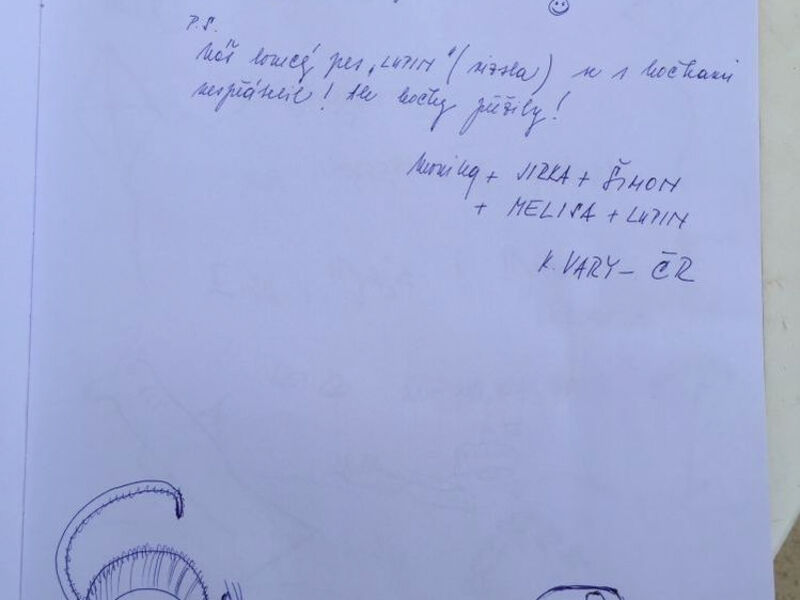 P.S.
Náš lovecký pes „LUPIN“ (vizsla) se s kočkami
nespřátelil! Ale kočky přežily!
Monika + JIRKA + ŠIMON
+ MELISA + LUPIN
K. VARY - ČR